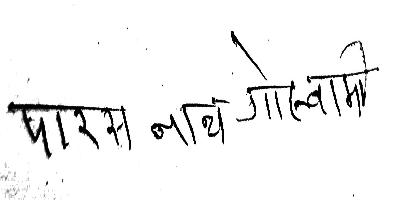 पारस नाथ गोस्वामी